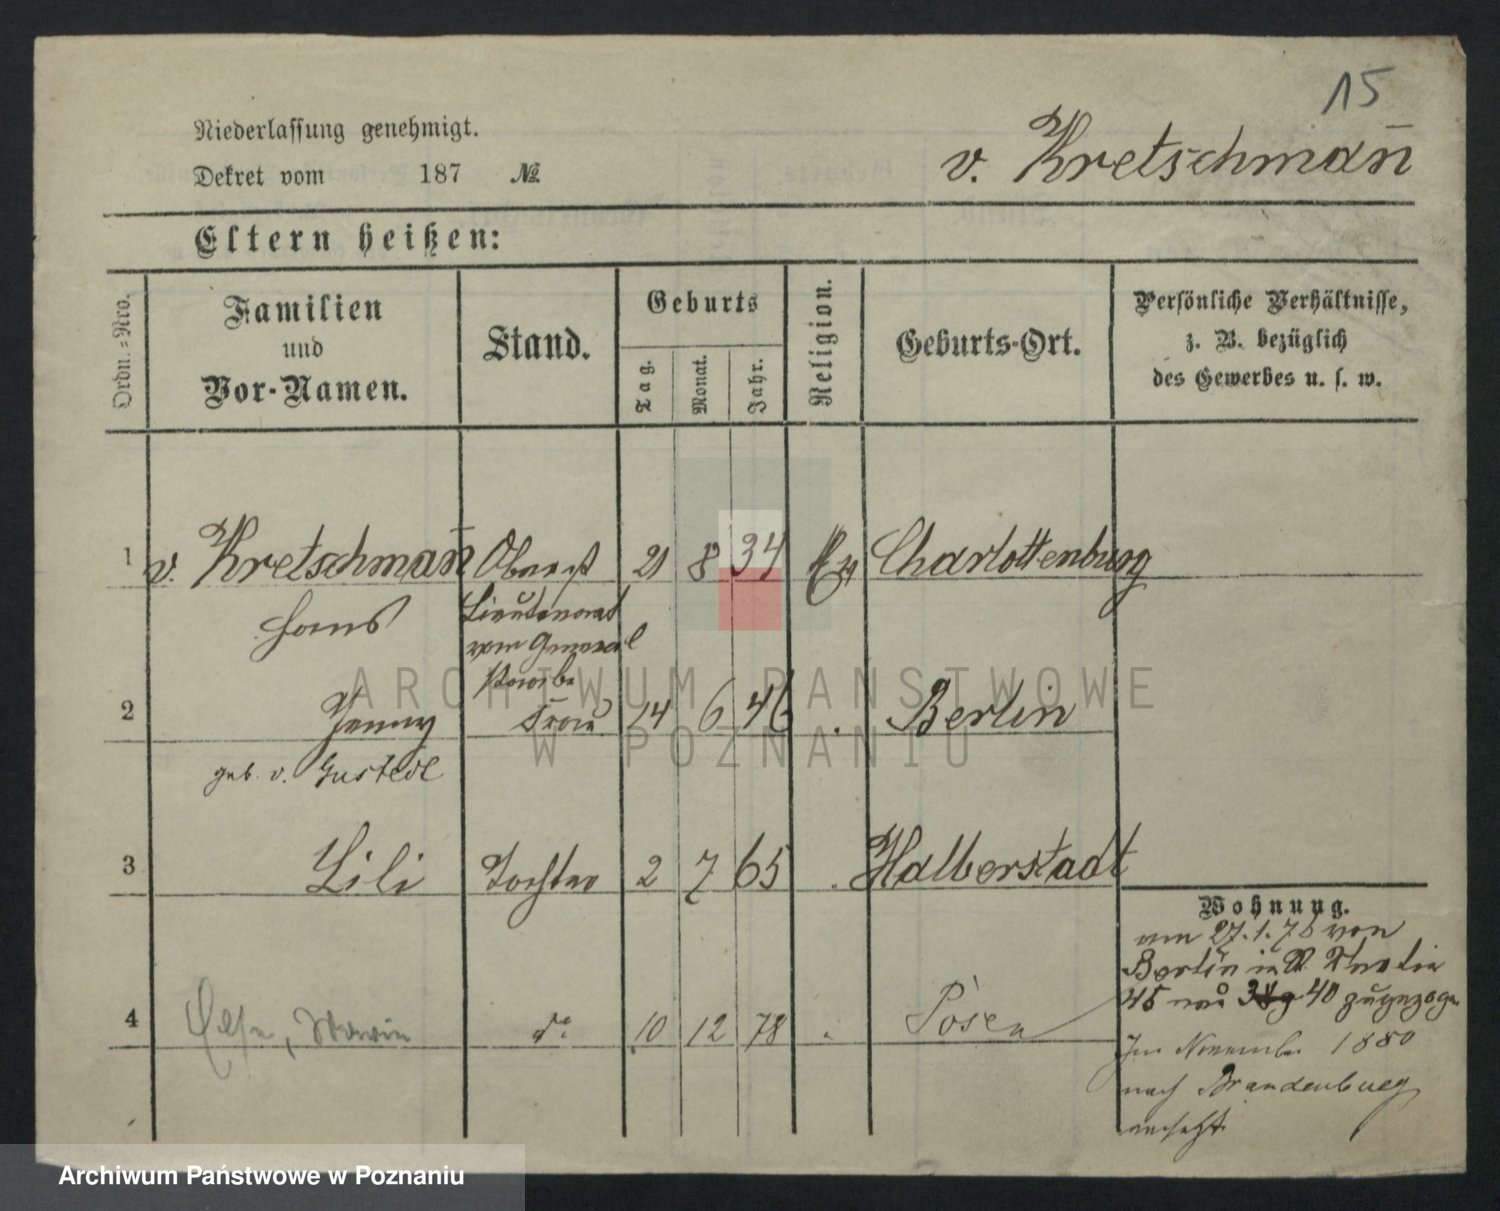 15
Niederlassung genehmigt.
v. Kretschmañ
Dekret vom 187 №
Eltern heißen:
Ordn.-Nro.
Familien
und
Vor-Namen.
Stand.
Geburts
Tag.
Monat.
Jahr.
Religion.
Geburts-Ort.
Persönliche Verhältnisse,
z. B. bezüglich
des Gewerbes u. s. w.
1 v. Kretschmañ Oberst 21 8 34 Charlottenburg
Hans Lieutenant
vom General
Stabe
2 Jenny Frau 14 6 46 Berlin
geb. v. Gustedt
3 Lili Tochter 2 7 65 Halberstadt
Wohnung.
am 27.1.76 von
Berlin
45 nach 40 zugezogen
4 Else, Marie do 10 12 78 Posen
Im November 1880
nach Brandenburg
versetzt.
ARCHIWUM PAŃSTWOWE
W POZNANIU
Archiwum Państwowe w Poznaniu